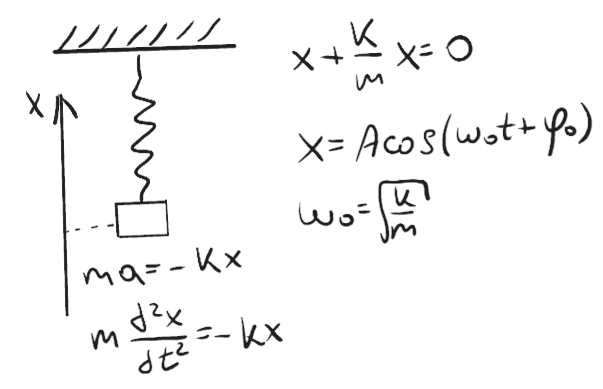 x
ma = -kx
m d²x/dt² = -kx
x + k/m x = 0
x = A cos(ω₀t + φ₀)
ω₀ = √(k/m)